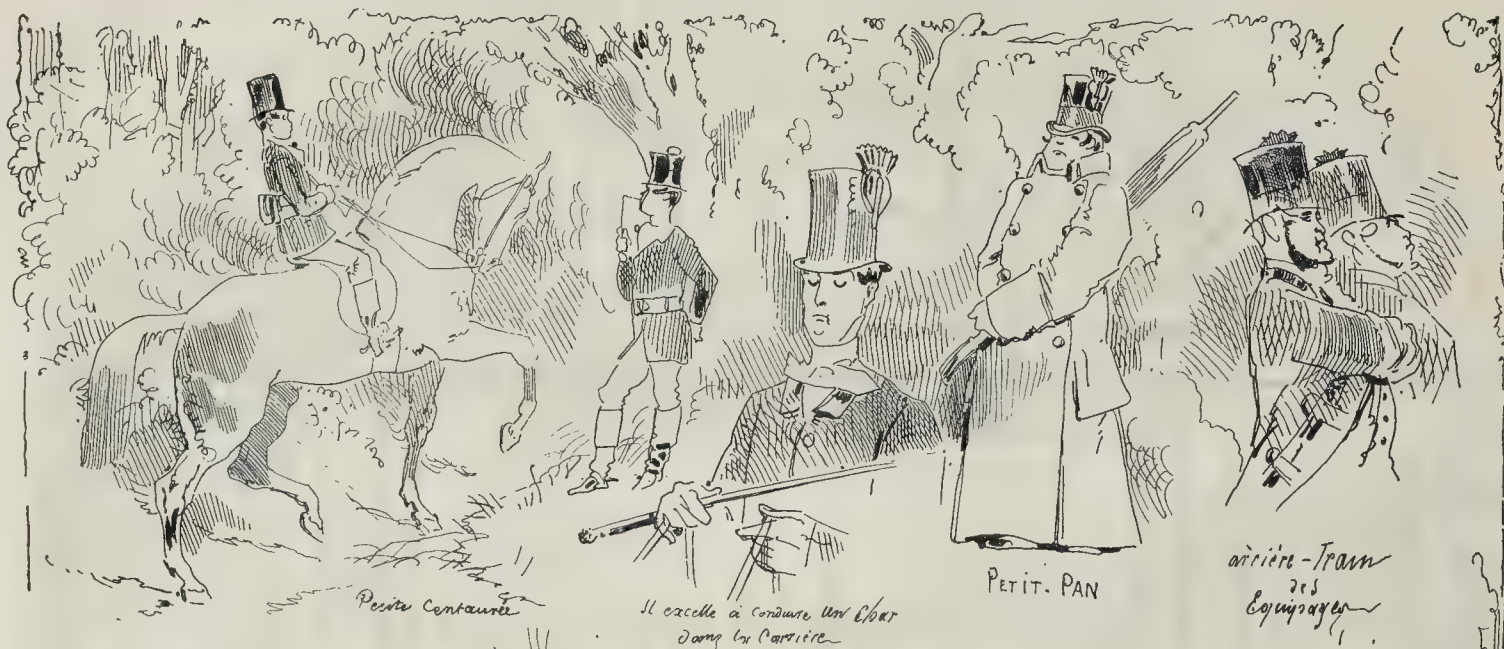 Petite Centaurée
Il excelle à conduire un Char
dans la Carrière
PETIT-PAN
arrière-Train
des
Equipages